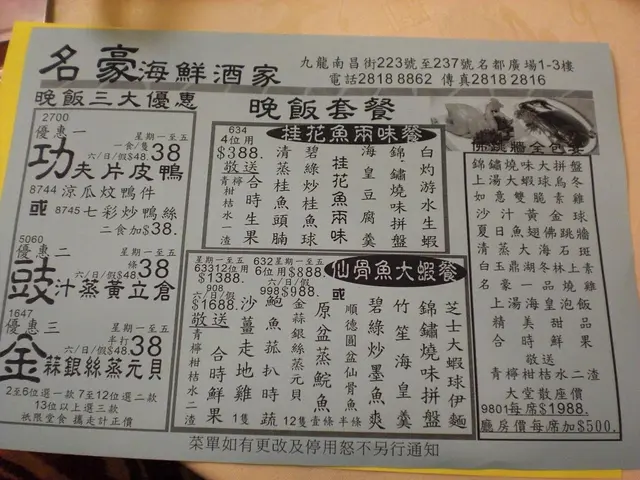 名豪海鮮酒家
九龍南昌街223號至237號名都廣場1-3樓
電話2818 8862 傳真2818 2816
晚飯三大優惠
2700
優惠一
星期一至五
一食/隻38
六/日/假$48.
功夫片皮鴨
8744 涼瓜炆鴨件
或 8745 七彩炒鴨絲
二食加$38.
5060
優惠二
星期一至五
條38
六/日/假$48.
豉汁蒸黃立倉
1647
優惠三
星期一至五
半打38
六/日/假$48.
金蒜銀絲蒸元貝
2至6位選一款 7至12位選二款
13位以上選三款
祇限堂食 攜走計正價
晚飯套餐
634
4位用
$388.
敬送
青檸柑桔水一渣
桂花魚兩味餐
白灼游水生蝦
錦鏽燒味拼盤
海皇豆腐羹
桂花魚兩味
碧綠炒桂魚球
清蒸桂魚頭腩
合時生果
星期一至五
63312位用
$1388.
908
六/日/假
$1688.
敬送
青檸柑桔水二渣
632星期一至五
6位用$888.
六/日/假
998$988.
仙骨魚大蝦餐
芝士大蝦球伊麵
錦鏽燒味拼盤
竹笙海皇羹
碧綠炒墨魚爽
或
順德圓盆仙骨魚 半條
原盆蒸鯇魚 壹條
金蒜銀絲蒸元貝 12隻
鮑魚菰扒時蔬
沙薑走地雞 1隻
合時鮮果
佛跳牆全包宴
錦鏽燒味大拼盤
上湯大蝦球烏冬
如意雙脆素雞
沙汁黃金球
夏日魚翅佛跳牆
清蒸大海石斑
白玉鼎湖冬林上素
名豪一品燒雞
上湯海皇泡飯
精美甜品
合時鮮果
敬送
青檸柑桔水二渣
大堂散座價
9801每席$1988.
廳房價每席加$500.
菜單如有更改及停用恕不另行通知